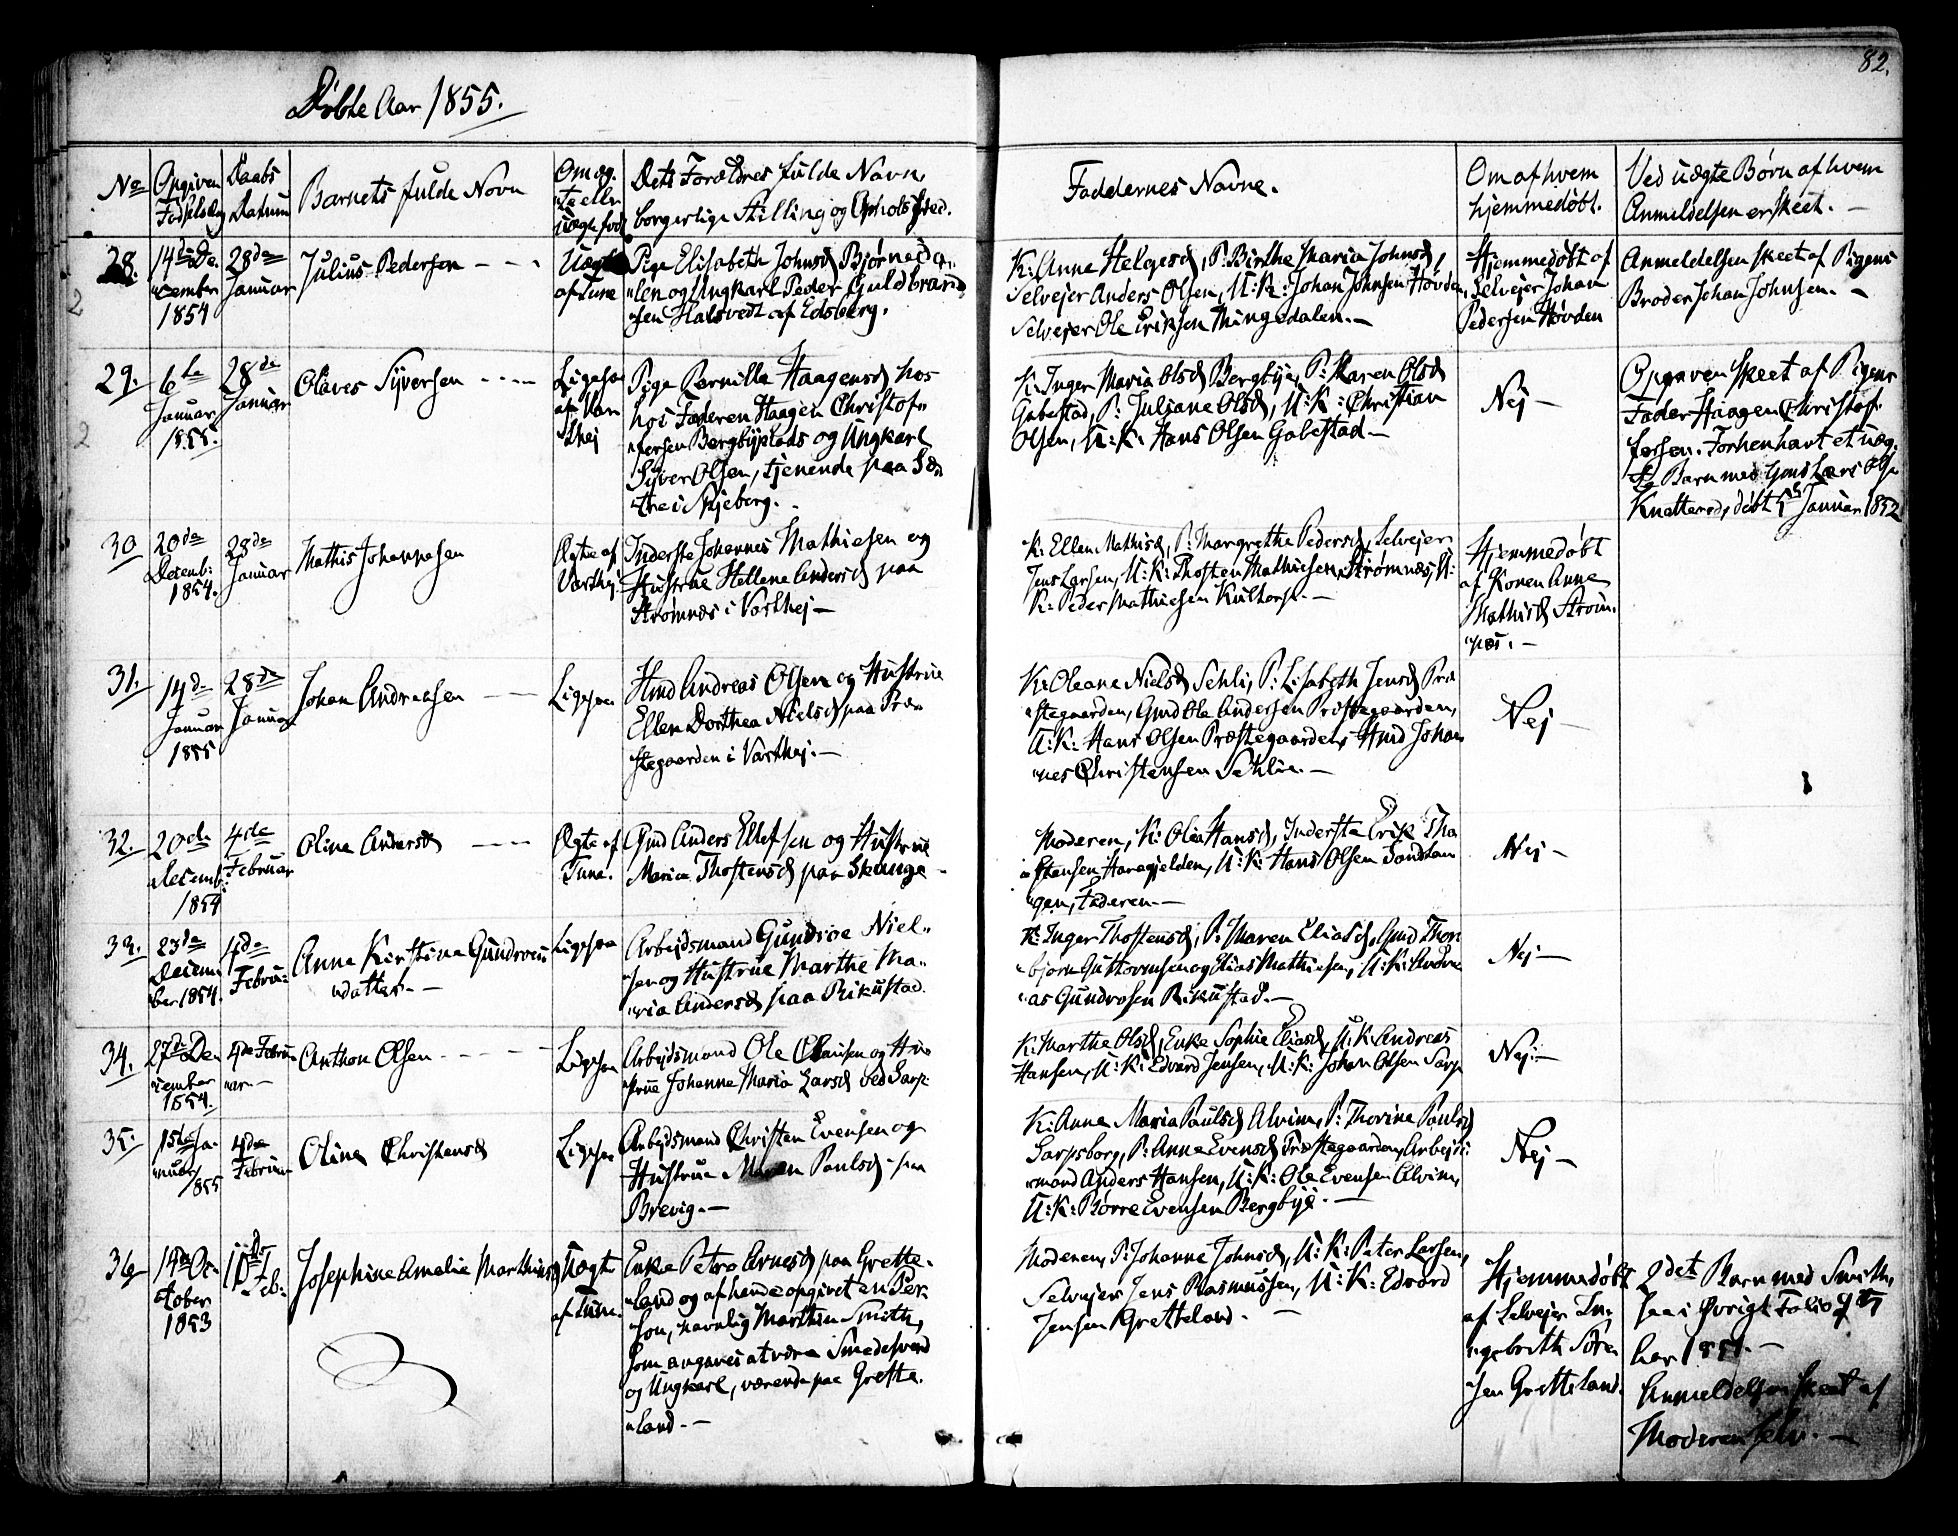 82.
Døbte Aar 1855.
No
Opgiven
Fødselsdag
Daabs
Datum
Barnets fulde Navn
Om æg-
te eller
uægte født
Dets Forældres fulde Navn,
borgerlige Stilling og Opholdssted.
Faddernes Navne.
Om af hvem
hjemmedøbt.
Ved uægte Børn af hvem
Anmeldelsen er skeet. —
28.
14de De-
"cember
1854
28de
Januar
Julius Pedersen - - -
Uægte
af Tune
Pige Elisabeth Johnsd Bjørneda-
"len og Ungkarl Peder Guldbrand
"sen Halsvedt af Edsberg.
K: Anne Helgesd, P: Birthe Maria Johnsd,
Selvejer Anders Olsen, U: K: Johan Johnsen Høvden,
Selvejer Ole Eriksen Thingedalen. —
Hjemmedøbt af
Selvejer Johan
Pedersen Høvden
Anmeldelsen skeet af Pigens
Broder Johan Johnsen. —
29.
6te
Januar
1855.
28de
Januar
Olaves Syversen - - - -
Ligesaa
af Var
thej
Pige Pernilla Haagensd hos
hos Faderen Haagen Christof-
"fersen Bergbyplads og Ungkarl
Syver Olsen, tjenende paa
i Skjeberg.
K. Inger Maria Olsd Bergbye, P: Maren Olsd
Gabestad, P: Juliane Olsd, U: K: Christian
Olsen, U: K: Hans Olsen Gabestad —
Nej —
Opgaven skeet af Pigens
Fader Haagen Christof-
fersen. Forhen havt et uæg-
te Barn med Gmd Lars Olsen
døbt Januar 1852
30
20de
Decemb:
1854.
28de
Januar
Mathis Johannesen
Ægte af
Varthej
Inderste Johannes Mathiesen og
Hustrue Hellene Andersd paa
Strømnæs i Varthej —
K: Ellen Mathisd, P: Margrethe Pedersd, Selvejer
Jens Larsen, U: K: Thosten Mathiesen Strømnæs, U:
K: Peder Mathiesen Kultorp. —
Hjemmedøbt
af Konen Anne
Mathisd Strøm-
"næs. —
31.
14de
Januar
1855
28de
Januar
Johan Andreasen - -
Ligesaa
Hmd Andreas Olsen og Hustrue
Ellen Dorthea Nielsd paa Præ-
"stegaarden i Varthej. —
K: Oleane Nielsd Sehli, P: Lisabeth Jensd Præ
"stegaarden, Gmd Ole Andersen Præstegaarden,
U: K: Hans Olsen Præstegaarden, Hmd Johan
"nes Christensen Sehlie. —
Nej —
32.
20de
Decemb:
1854
4de
Februar
Oline Andersd - - -
Ægte af
Tune.
Gmd Anders Ellefsen og Hustrue
Maria Thostensd paa Skange
Moderen, K: Olea Hansd, Inderste Erik Tho
"stensen Haragjelden, U: K: Hans Olsen Sandtan
"gen, Faderen. —
Nej —
33.
23de
Decem
ber 1854.
4de
Februar
Anne Kirstine Gundroes
"datter. —
Ligesaa
Arbejdsmand Gundroe Niel-
"sen og Hustrue Marthe Ma-
"ria Andersd paa Rikustad.
K: Inger Thostensd, P: Maren Eliasd, Gmd Thor
"bjørn Guttormsen og Elias Mathiesen, U: K: Andre
"as Gundrosen Rikustad. —
Nej —
34.
27de De
"cember
1854.
4de Febru
"ar. —
Anthon Olsen - - - -
Ligesaa
Arbejdsmand Ole Clausen og Hu-
"strue Johanne Maria Larsd ved Sarp.
K: Marthe Olsd, Enke Sophie Eliasd, U: K: Andreas
Hansen, U: K: Edvard Jensen, U: K: Johan Olsen Sarp
Nej —
35.
15de Ja-
"nuar
1855
4de
Februar
Oline Christensd
Ligesaa
Arbejdsmand Christen Evensen og
Hustrue Maren Paulsd paa
Brevig. —
K: Anne Maria Paulsd Alvim, P: Thorine Paulsd
Sarpsborg, P: Anne Evensd Præstegaarden, Arbejds
"mand Anders Hansen, U: K: Ole Evensen Alvim,
U: K: Børre Evensen Bergbye. —
Nej —
36
14de Oc-
"tober
1853
Feb:
Josephine Amalie Marthinsd
Uægte
af Tune.
Enke Petra Arnesd paa Grette-
"land og af hende opgivet en Per-
"son, navnlig Marthin Smith,
som angives at være Smedesvend
og Ungkarl, værende paa Grette-
"land. —
Moderen, P: Johanne Johnsd, U: K: Peter Larsen,
Selvejer Jens Rasmussen, U: K: Edvard
Jensen Gretteland. —
Hjemmedøbt
af Selvejer In-
"gebreth Søren
"sen Gretteland.
2det Barn med Smith,
see i Øvrigt Folio
her 1851. —
Anmeldelsen skeet af
Moderen selv. —
2
2